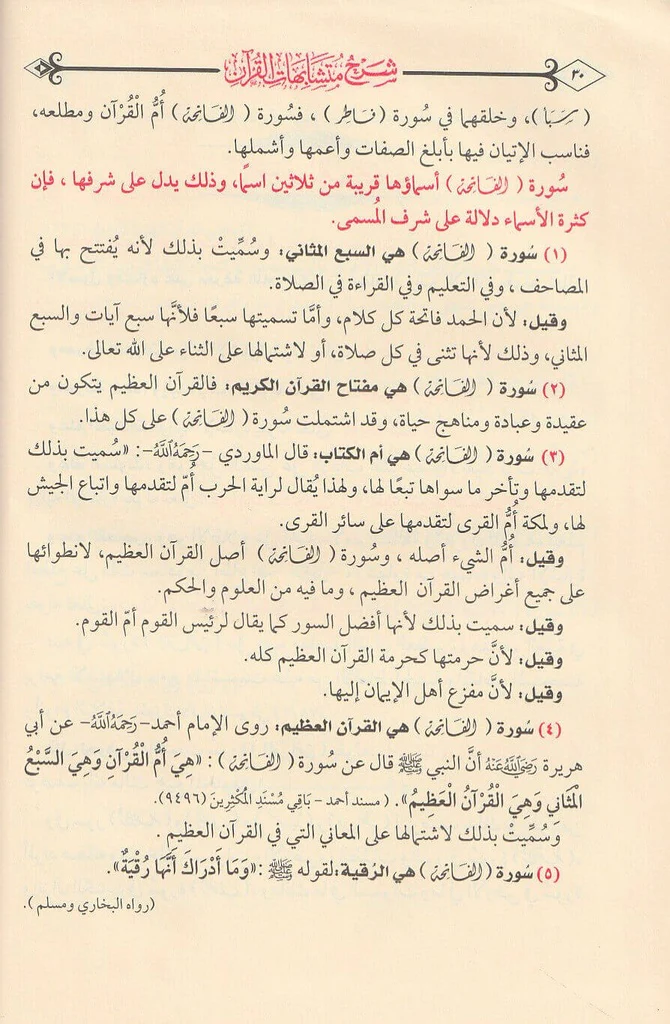 ٣٠
شَرْحُ مُتَشَابِهَاتِ القُرْآنِ
( سَبَأ )، وخلقهما في سُورة ( فَاطِر ) ، فسُورة ( الفَاتِحَة ) أُمُّ الْقُرْآن ومطلعه،
فناسب الإتيان فيها بأبلغ الصفات وأعمها وأشملها.
سُورة ( الفَاتِحَة ) أسماؤها قريبة من ثلاثين اسمًا، وذلك يدل على شرفها ، فإن
كثرة الأسماء دلالة على شرف المُسمى.
(١) سُورة ( الفَاتِحَة ) هي السبع المثاني: وسُمِّيتْ بذلك لأنه يُفتتح بها في
المصاحف ، وفي التعليم وفي القراءة في الصلاة.
وقيل: لأن الحمد فاتحة كل كلام، وأمَّا تسميتها سبعًا فلأنَّها سبع آيات والسبع
المثاني، وذلك لأنها تثنى في كل صلاة، أو لاشتمالها على الثناء على الله تعالى.
(٢) سُورة ( الفَاتِحَة ) هي مفتاح القرآن الكريم: فالقرآن العظيم يتكون من
عقيدة وعبادة ومناهج حياة، وقد اشتملت سُورة ( الفَاتِحَة ) على كل هذا.
(٣) سُورة ( الفَاتِحَة ) هي أم الكتاب: قال الماوردي -رَحِمَهُ اللَّهُ-: «سُميت بذلك
لتقدمها وتأخر ما سواها تبعًا لها، ولهذا يُقال لراية الحرب أُمّ لتقدمها واتباع الجيش
لها، ولمكة أُمُّ القرى لتقدمها على سائر القرى.
وقيل: أُمُّ الشيء أصله ، وسُورة ( الفَاتِحَة ) أصل القرآن العظيم، لانطوائها
على جميع أغراض القرآن العظيم ، وما فيه من العلوم والحكم.
وقيل: سميت بذلك لأنها أفضل السور كما يقال لرئيس القوم أمّ القوم.
وقيل: لأنَّ حرمتها كحرمة القرآن العظيم كله.
وقيل: لأنَّ مفزع أهل الإيمان إليها.
(٤) سُورة ( الفَاتِحَة ) هي القرآن العظيم: روى الإمام أحمد-رَحِمَهُ اللَّهُ- عن أبي
هريرة رَضِيَ اللَّهُ عَنْهُ أنَّ النبي ﷺ قال عن سُورة ( الفَاتِحَة ) : «هِيَ أُمُّ الْقُرْآنِ وَهِيَ السَّبْعُ
الْمَثَانِي وَهِيَ الْقُرْآنُ الْعَظِيمُ». (مسند أحمد - بَاقِي مُسْنَدِ المُكْثِرِينَ (٩٤٩٦).
وَسُمِّيتْ بذلك لاشتمالها على المعاني التي في القرآن العظيم .
(٥) سُورة ( الفَاتِحَة ) هي الرُقية: لقوله ﷺ :«وَمَا أَدْرَاكَ أَنَّهَا رُقْيَةٌ».
(رواه البخاري ومسلم ).